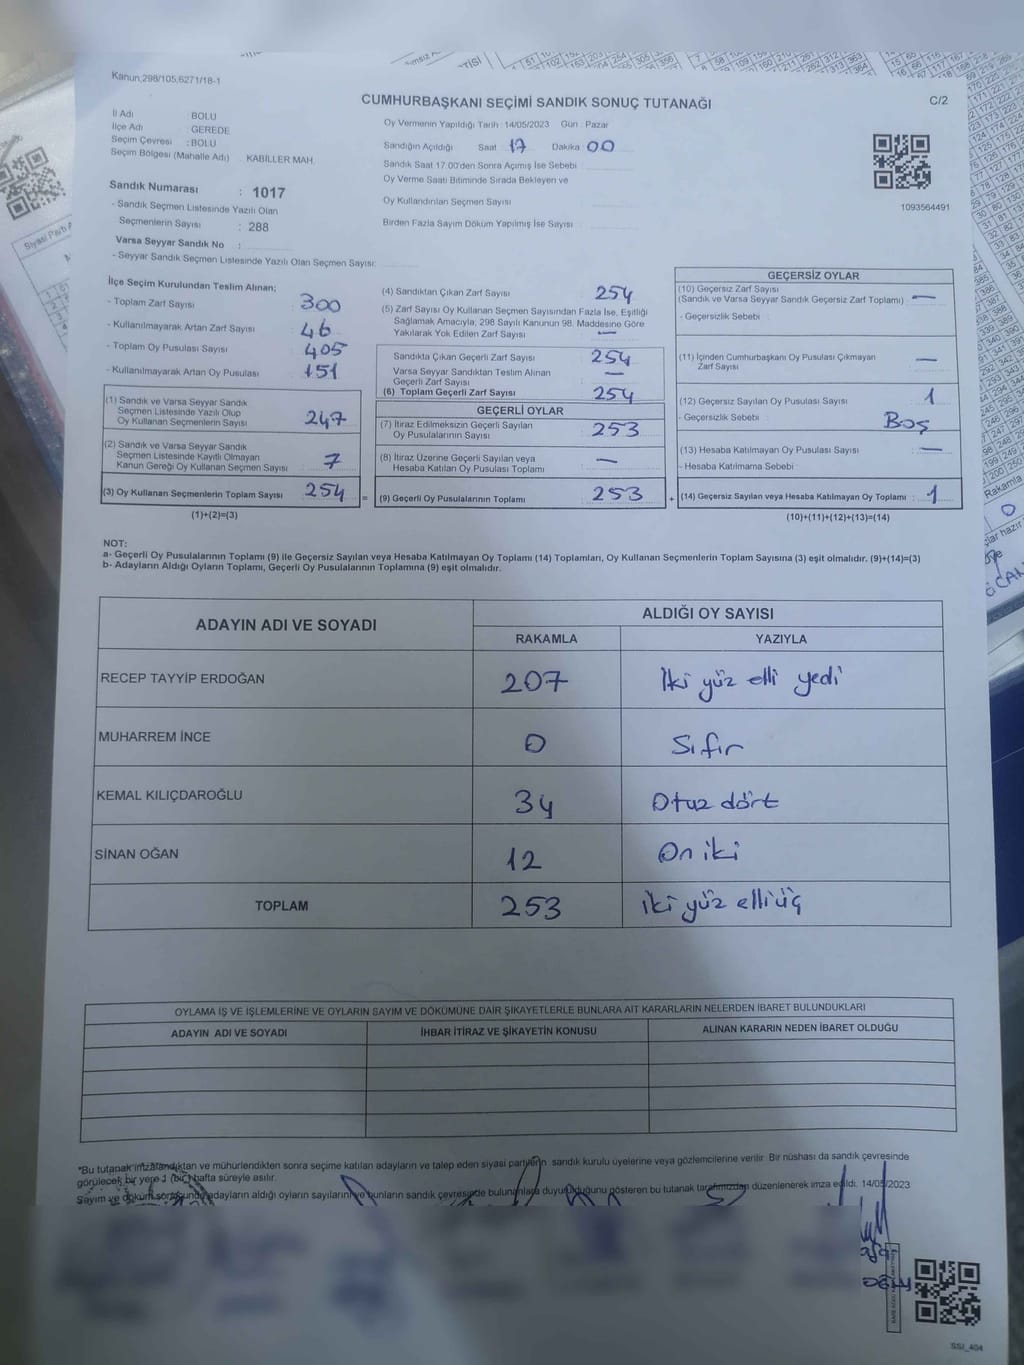 Kanun,298/105,6271/18-1
CUMHURBAŞKANI SEÇİMİ SANDIK SONUÇ TUTANAĞI
C/2
İl Adı : BOLU
İlçe Adı : GEREDE
Seçim Çevresi : BOLU
Seçim Bölgesi (Mahalle Adı) : KABİLLER MAH.
Oy Vermenin Yapıldığı Tarih : 14/05/2023 Gün : Pazar
Sandığın Açıldığı Saat : 17 Dakika : 00
Sandık Saat 17.00'den Sonra Açılmış İse Sebebi :
Oy Verme Saati Bitiminde Sırada Bekleyen ve
Oy Kullandırılan Seçmen Sayısı :
Birden Fazla Sayım Döküm Yapılmış İse Sayısı :
1093564491
Sandık Numarası : 1017
- Sandık Seçmen Listesinde Yazılı Olan
Seçmenlerin Sayısı : 288
Varsa Seyyar Sandık No :
- Seyyar Sandık Seçmen Listesinde Yazılı Olan Seçmen Sayısı:
İlçe Seçim Kurulundan Teslim Alınan;
- Toplam Zarf Sayısı : 300
- Kullanılmayarak Artan Zarf Sayısı : 46
- Toplam Oy Pusulası Sayısı : 405
- Kullanılmayarak Artan Oy Pusulası : 151
(1) Sandık ve Varsa Seyyar Sandık
Seçmen Listesinde Yazılı Olup
Oy Kullanan Seçmenlerin Sayısı : 247
(2) Sandık ve Varsa Seyyar Sandık
Seçmen Listesinde Kayıtlı Olmayan
Kanun Gereği Oy Kullanan Seçmen Sayısı : 7
(3) Oy Kullanan Seçmenlerin Toplam Sayısı : 254 =
(1)+(2)=(3)
(4) Sandıktan Çıkan Zarf Sayısı : 254
(5) Zarf Sayısı Oy Kullanan Seçmen Sayısından Fazla İse, Eşitliği
Sağlamak Amacıyla, 298 Sayılı Kanunun 98. Maddesine Göre
Yakılarak Yok Edilen Zarf Sayısı : —
Sandıkta Çıkan Geçerli Zarf Sayısı : 254
Varsa Seyyar Sandıktan Teslim Alınan
Geçerli Zarf Sayısı : —
(6) Toplam Geçerli Zarf Sayısı : 254
GEÇERLİ OYLAR
(7) İtiraz Edilmeksizin Geçerli Sayılan
Oy Pusulalarının Sayısı : 253
(8) İtiraz Üzerine Geçerli Sayılan veya
Hesaba Katılan Oy Pusulası Toplamı : —
(9) Geçerli Oy Pusulalarının Toplamı : 253 +
GEÇERSİZ OYLAR
(10) Geçersiz Zarf Sayısı
(Sandık ve Varsa Seyyar Sandık Geçersiz Zarf Toplamı) : —
- Geçersizlik Sebebi :
(11) İçinden Cumhurbaşkanı Oy Pusulası Çıkmayan
Zarf Sayısı : —
(12) Geçersiz Sayılan Oy Pusulası Sayısı : 1
- Geçersizlik Sebebi : Boş
(13) Hesaba Katılmayan Oy Pusulası Sayısı : —
- Hesaba Katılmama Sebebi :
(14) Geçersiz Sayılan veya Hesaba Katılmayan Oy Toplamı : 1
(10)+(11)+(12)+(13)=(14)
NOT:
a- Geçerli Oy Pusulalarının Toplamı (9) ile Geçersiz Sayılan veya Hesaba Katılmayan Oy Toplamı (14) Toplamları, Oy Kullanan Seçmenlerin Toplam Sayısına (3) eşit olmalıdır. (9)+(14)=(3)
b- Adayların Aldığı Oyların Toplamı, Geçerli Oy Pusulalarının Toplamına (9) eşit olmalıdır.
ADAYIN ADI VE SOYADI
ALDIĞI OY SAYISI
RAKAMLA YAZIYLA
RECEP TAYYİP ERDOĞAN 207 İki yüz elli yedi
MUHARREM İNCE 0 Sıfır
KEMAL KILIÇDAROĞLU 34 Otuz dört
SİNAN OĞAN 12 On iki
TOPLAM 253 iki yüz elli üç
OYLAMA İŞ VE İŞLEMLERİNE VE OYLARIN SAYIM VE DÖKÜMÜNE DAİR ŞİKAYETLERLE BUNLARA AİT KARARLARIN NELERDEN İBARET BULUNDUKLARI
ADAYIN ADI VE SOYADI İHBAR İTİRAZ VE ŞİKAYETİN KONUSU ALINAN KARARIN NEDEN İBARET OLDUĞU
*Bu tutanak imzalandıktan ve mühürlendikten sonra seçime katılan adayların ve talep eden siyasi partilerin sandık kurulu üyelerine veya gözlemcilerine verilir. Bir nüshası da sandık çevresinde
görülecek bir yere 1 (bir) hafta süreyle asılır.
Sayım ve döküm sonucunda adayların aldığı oyların sayılarını ve bunların sandık çevresinde bulunanlara duyurulduğunu gösteren bu tutanak tarafımızdan düzenlenerek imza edildi. 14/05/2023
SSI_404